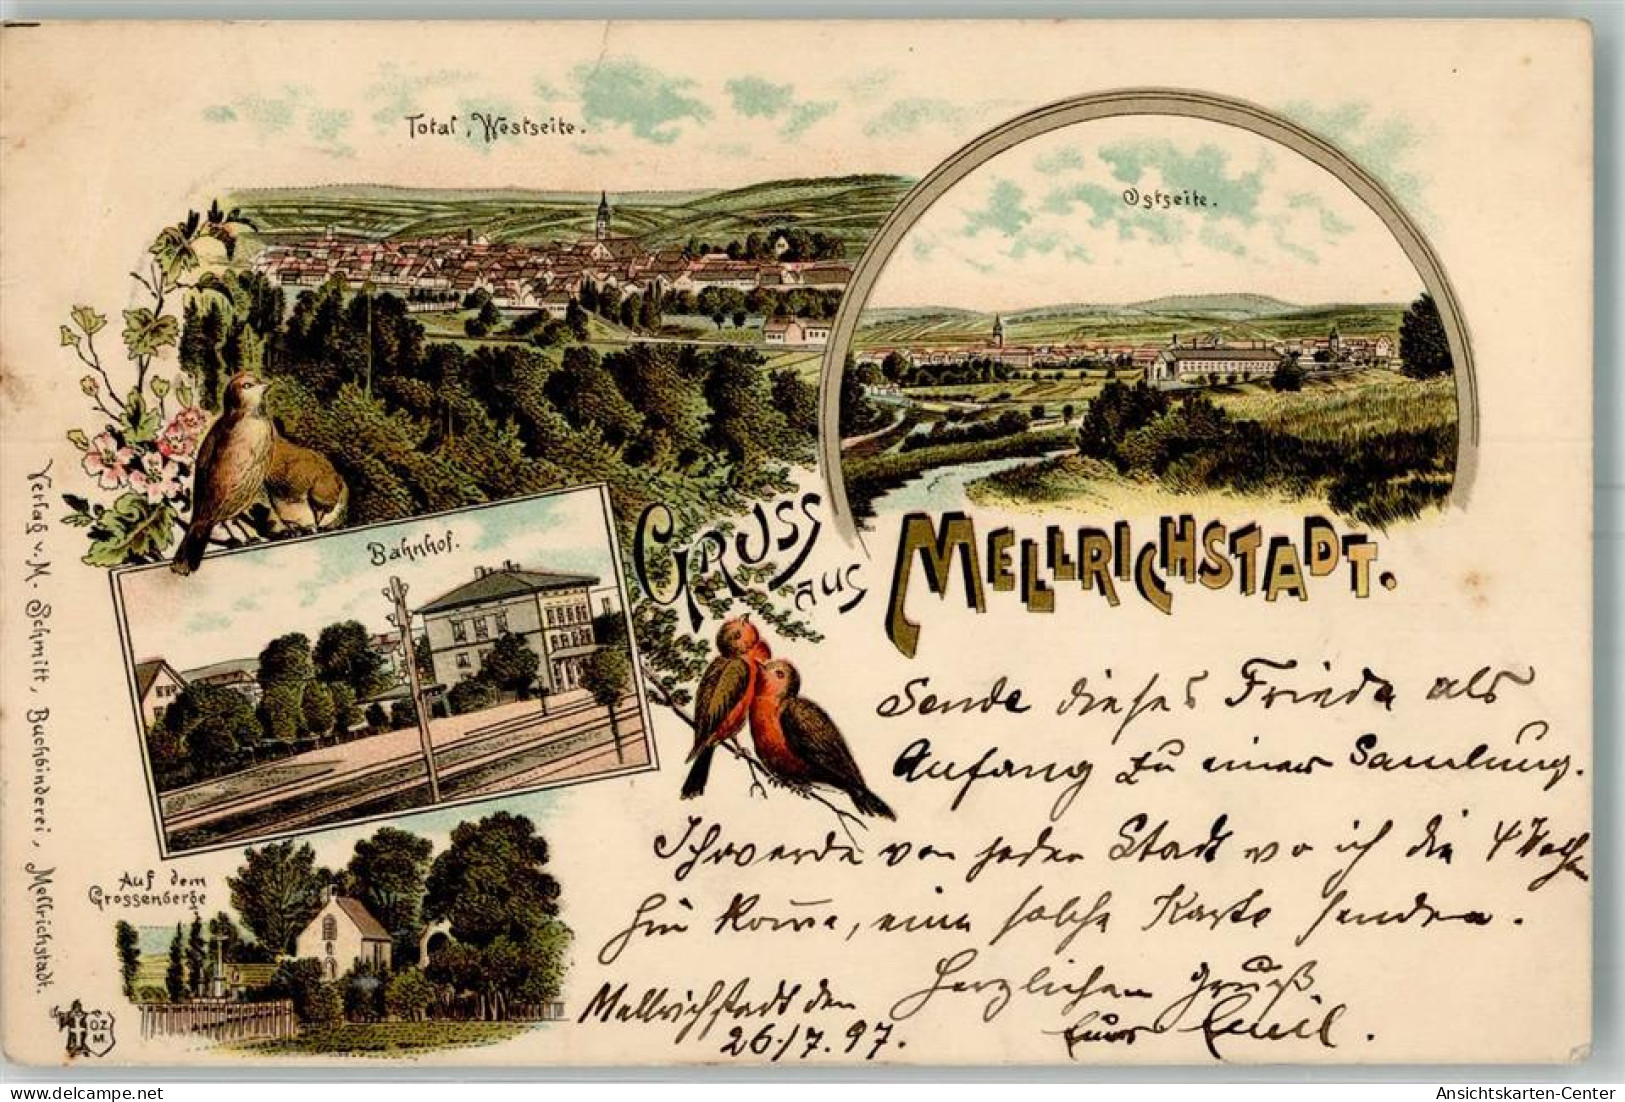 Total, Westseite.
Ostseite.
Bahnhof.
Gruss
aus
Mellrichstadt.
Auf dem
Grossenberge
Verlag v. M. Schmitt, Buchbinderei, Mellrichstadt.
OZ
M.
Sende dieses Frieda als
Anfang zu einer Samlung.
Ich werde von jeder Stadt wo ich die 4 Wochen
hin kome, eine solche Karte senden.
Herzlichen Gruß
Mellrichstadt den
26./7. 97.
Euer Emil.
AnsichtsKarten-Center